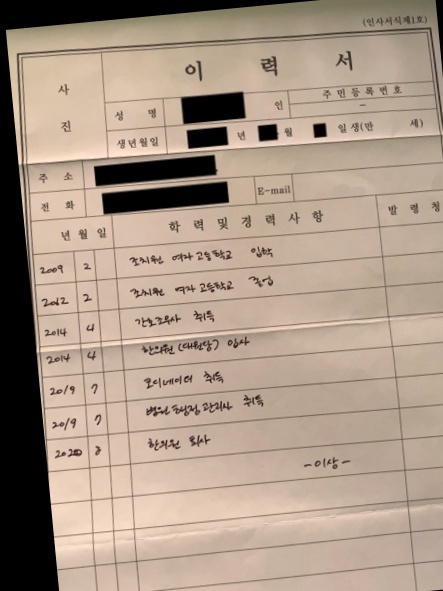 (인사서식제1호)
이 력 서
사 진
성 명 인 주민등록번호
-
생년월일 년 월 일생(만 세)
주 소
전 화 E-mail
년 월 일 학 력 및 경 력 사 항 발 령 청
2009 2 조치원 여자고등학교 입학
2012 2 조치원 여자고등학교 졸업
2014 4 간호조무사 취득
2014 4 한의원 (대원당) 입사
2019 7 코디네이터 취득
2019 7 병원 행정관리사 취득
2020 한의원 퇴사
-이상-